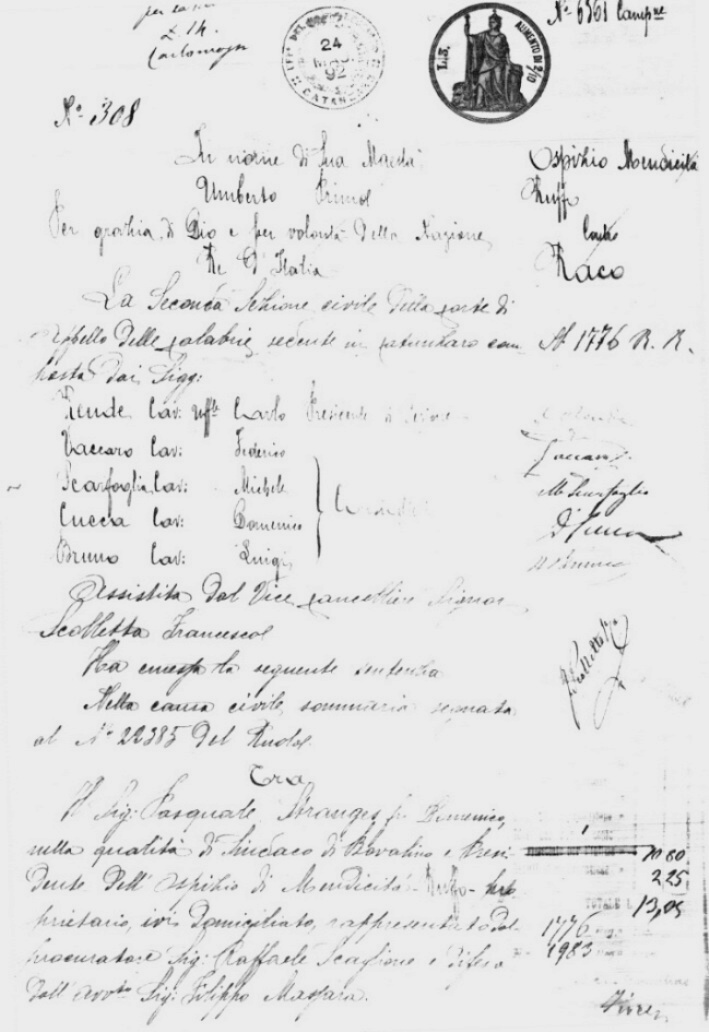 24
92
CATANZARO
L. 3.
AUMENTO DI 2/10
Nº 6561 Campne
Nº 308
In nome di Sua Maestà
Umberto Primo
Per grazia di Dio e per volontà della Nazione
Re d'Italia
Ospizio Mendicità
Ruffo
contro
Raco
La Seconda Sezione civile della Corte di
Appello delle Calabrie, sedente in Catanzaro com
posta dai Sigg:
Art 1776 R. R.
Rende Cav: Uffle Carlo Presidente di Sezione
Vaccaro Cav: Federico
Scarfoglio Cav: Michele
Cuccia Cav: Domenico
Bruno Cav: Luigi
Consiglieri
Vaccaro
M Scarfoglio
D Cuccia
L Bruno
Assistita dal Vice Cancelliere Signor
Scalletta Francesco
Ha emesso la seguente sentenza
Nella causa civile sommaria segnata
al Nº 22385 del Ruolo
Tra
Il Sig: Pasquale Stranges fu Domenico,
nella qualità di Sindaco di Bovalino e Presi
dente dell'Ospizio di Mendicità - Ruffo - pro
prietario, ivi domiciliato, rappresentato dal
procuratore Sig: Raffaele Scaglione e difeso
dall'avvto Sig: Filippo Massara.
10 80
2 25
TOTALE L. 13,05
1776
1983